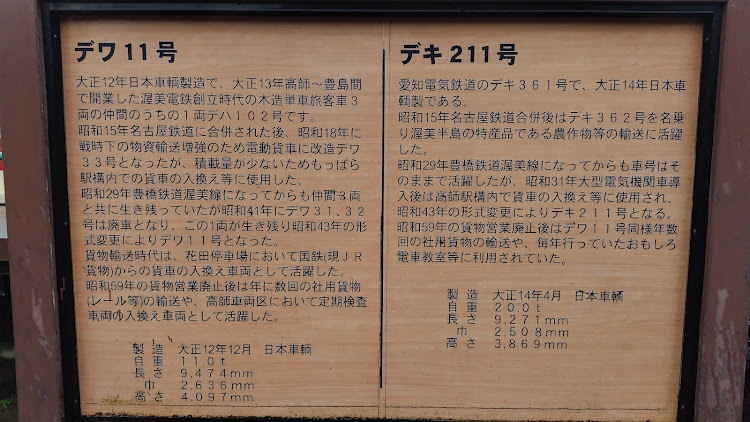 デワ11号
大正12年日本車輌製造で、大正13年高師～豊島間
で開業した渥美電鉄創立時代の木造単車旅客車3
両の仲間のうちの1両デハ102号です。
昭和15年名古屋鉄道に合併された後、昭和18年に
戦時下の物資輸送増強のため電動貨車に改造デワ
33号となったが、積載量が少ないためもっぱら
駅構内での貨車の入換え等に使用した。
昭和29年豊橋鉄道渥美線になってからも仲間3両
と共に生き残っていたが昭和41年にデワ31、32
号は廃車となり、この1両が生き残り昭和43年の形
式変更によりデワ11号となった。
貨物輸送時代は、花田停車場において国鉄(現JR
貨物)からの貨車の入換え車両として活躍した。
昭和59年の貨物営業廃止後は年に数回の社用貨物
(レール等)の輸送や、高師車両区において定期検査
車両の入換え車両として活躍した。
製造 大正12年12月 日本車輌
自重 11.0t
長さ 9,474mm
巾 2,636mm
高さ 4,097mm
デキ211号
愛知電気鉄道のデキ361号で、大正14年日本車
輌製である。
昭和15年名古屋鉄道合併後はデキ362号を名乗
り渥美半島の特産品である農作物等の輸送に活躍
した。
昭和29年豊橋鉄道渥美線になってからも車号はそ
のままで活躍したが、昭和31年大型電気機関車導
入後は高師駅構内で貨車の入換え等に使用され、
昭和43年の形式変更によりデキ211号となる。
昭和59年の貨物営業廃止後はデワ11号同様年数
回の社用貨物の輸送や、毎年行っていたおもしろ
電車教室等に利用されていた。
製造 大正14年4月 日本車輌
自重 20.0t
長さ 9,271mm
巾 2,508mm
高さ 3,869mm